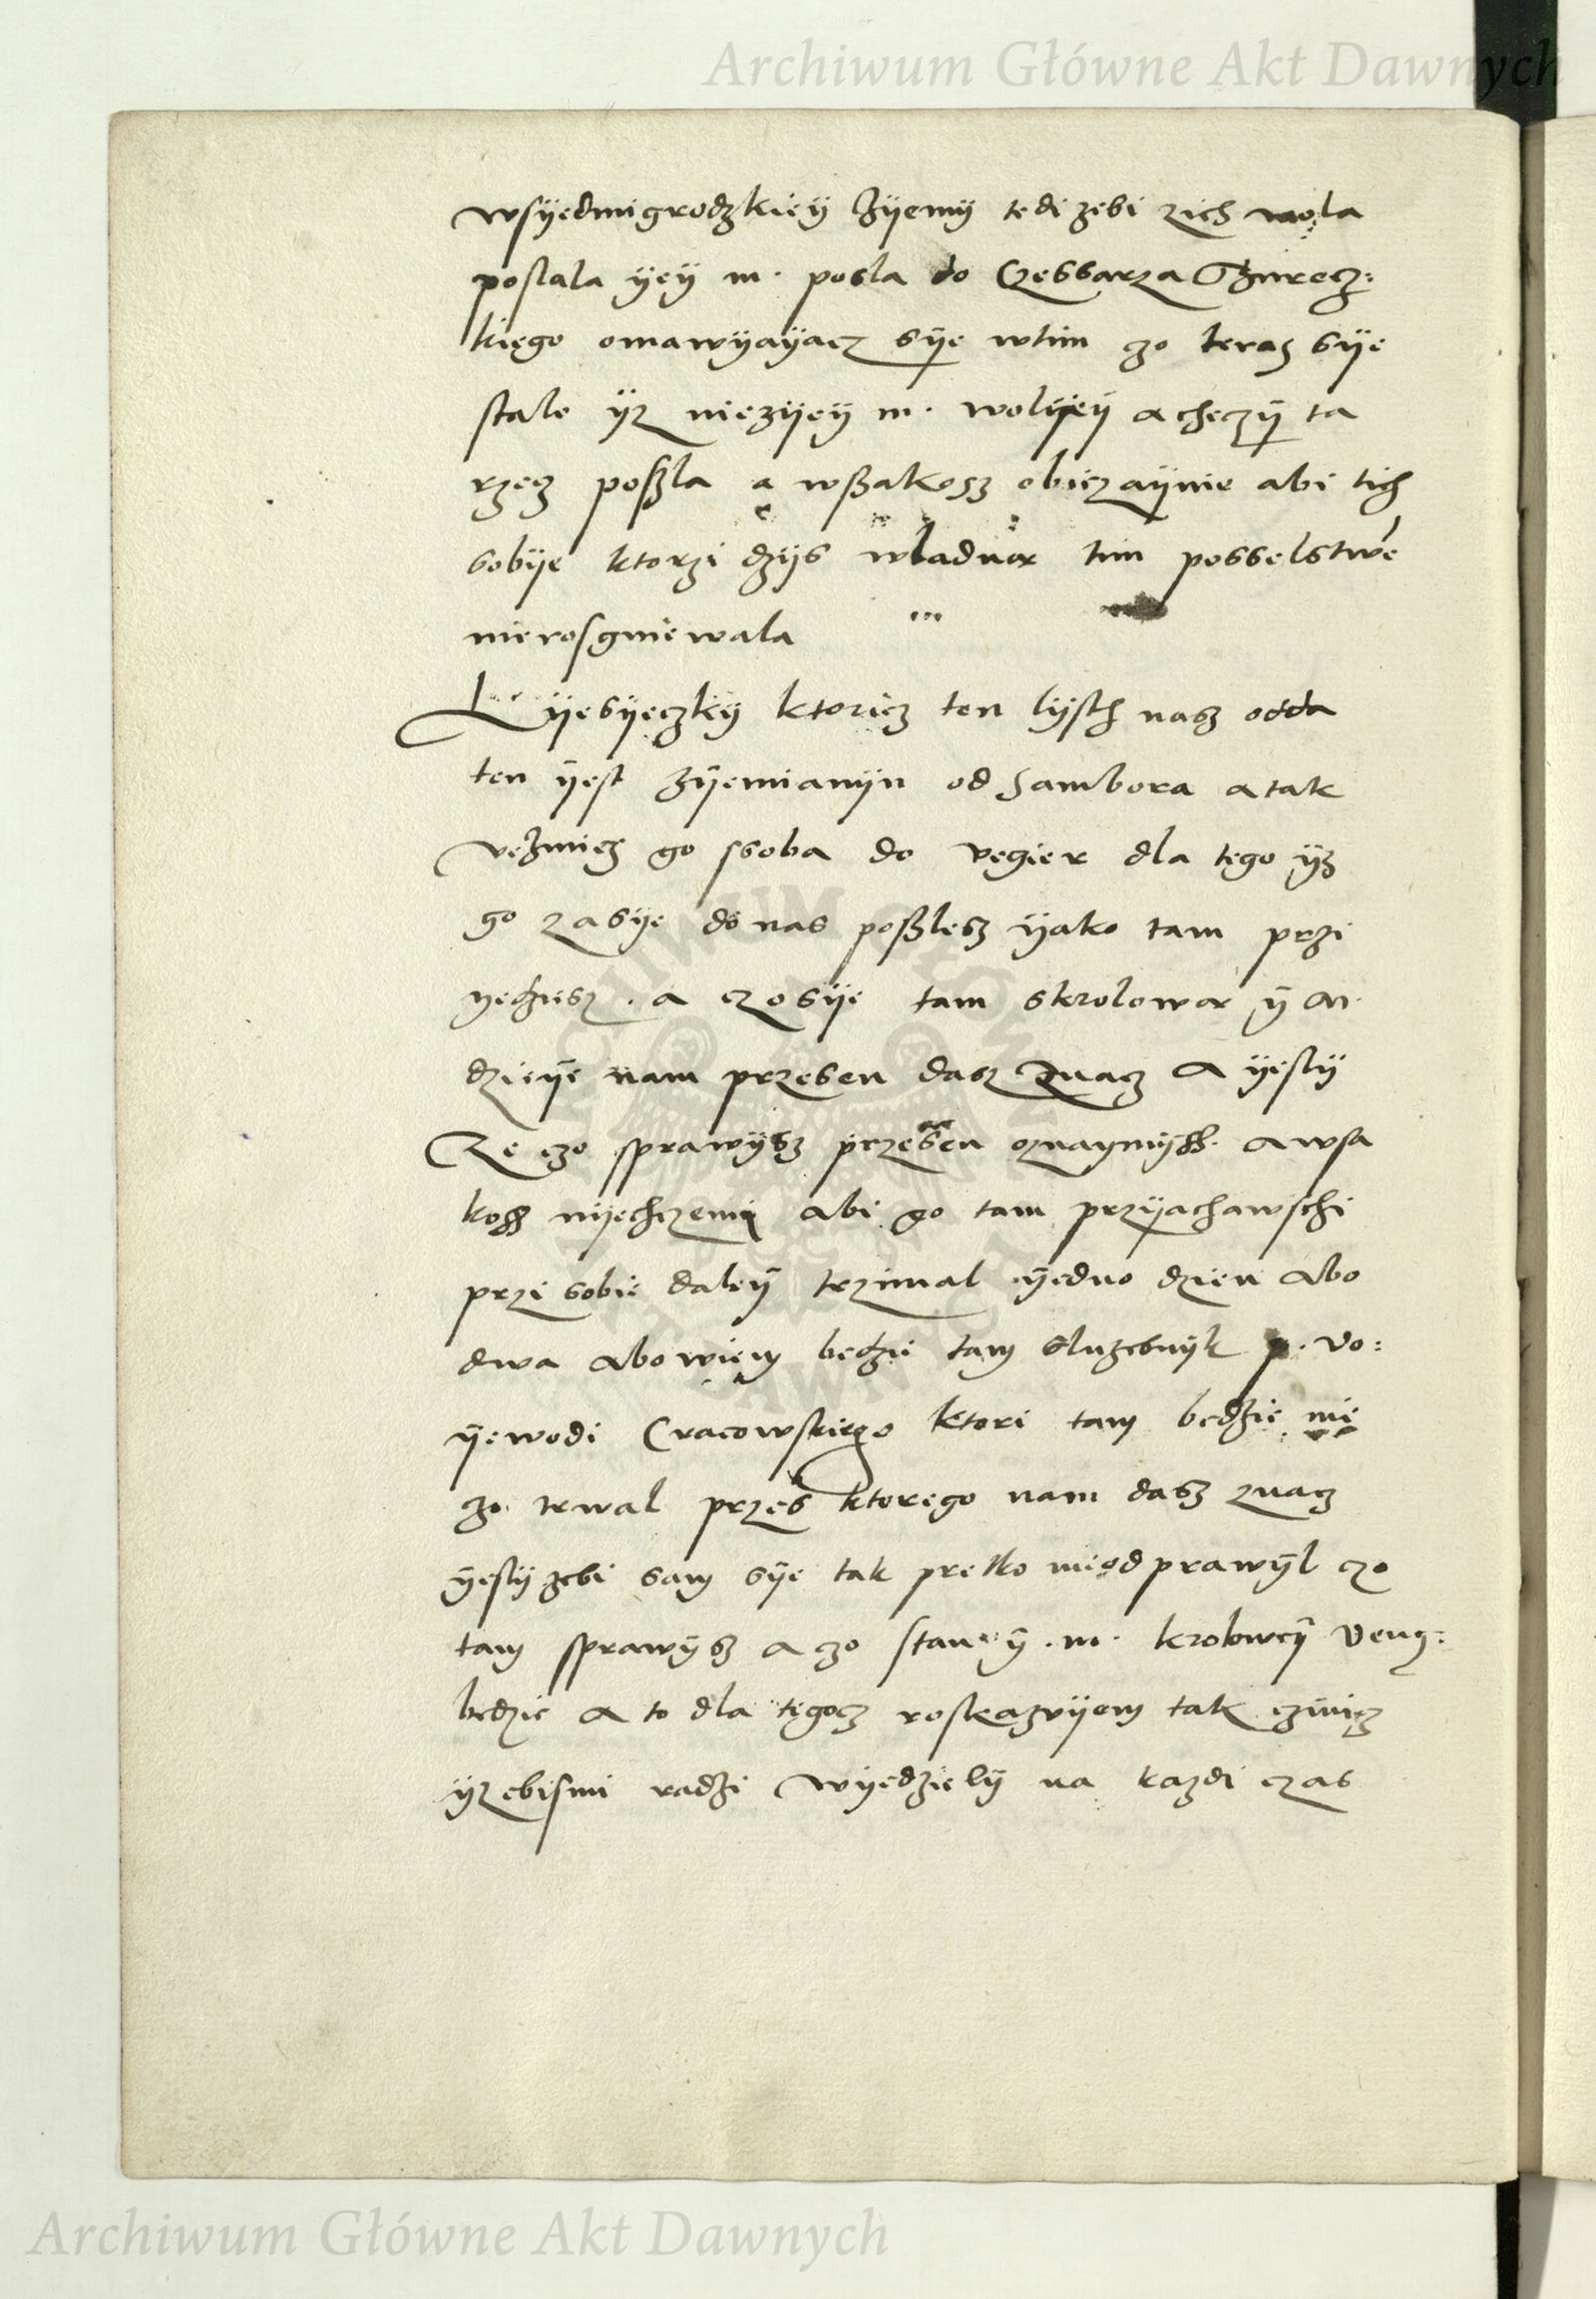 Archiwum Główne Akt Dawnych
wsyedmigrodzkiey zyemy tedi zebi zich wola
poslala yey m. posla do Czessarza Thurecz:
kiego omawyayacz sye wtim czo teraz sye
stalo yz niezyey m. woliyey a checzy ta
rzecz poszla a wszakosz obiczaynie abi tich
sobye ktorzi dzys wladna tim posselstwe
nierosgniewala
Lyesyeczky ktoricz ten lysth nasz odda
ten yest zyemianyn od Sambora a tak
vezmiesz go ssoba do vegier dla tego yz
go zasye do nas poszlesz yako tam przi
yedziesz . a czo sye tam skrolowa y m.
dzieye nam przesen dasz znacz A yesly
ze czo sprawysz przesen oznaymissz. a wsa
kossz nyechczemy abi go tam przyachawschi
przi sobie daley trzimal yedno dzien abo
dwa abowiem bedzie tam sluzebnyk p. vo:
yewodi Cracowskiego ktori tam bedzie nie
czo trwal przes ktorego nam dasz znacz
yesly zebi sam sye tak pretko nieodprawyl czo
tam sprawysz a czo stan y .m. krolowey Veng:
bedzie a to dla tegocz roskazuyem tak czinicz
yzebismi radzi wyedziely na kazdi czas
Archiwum Główne Akt Dawnych